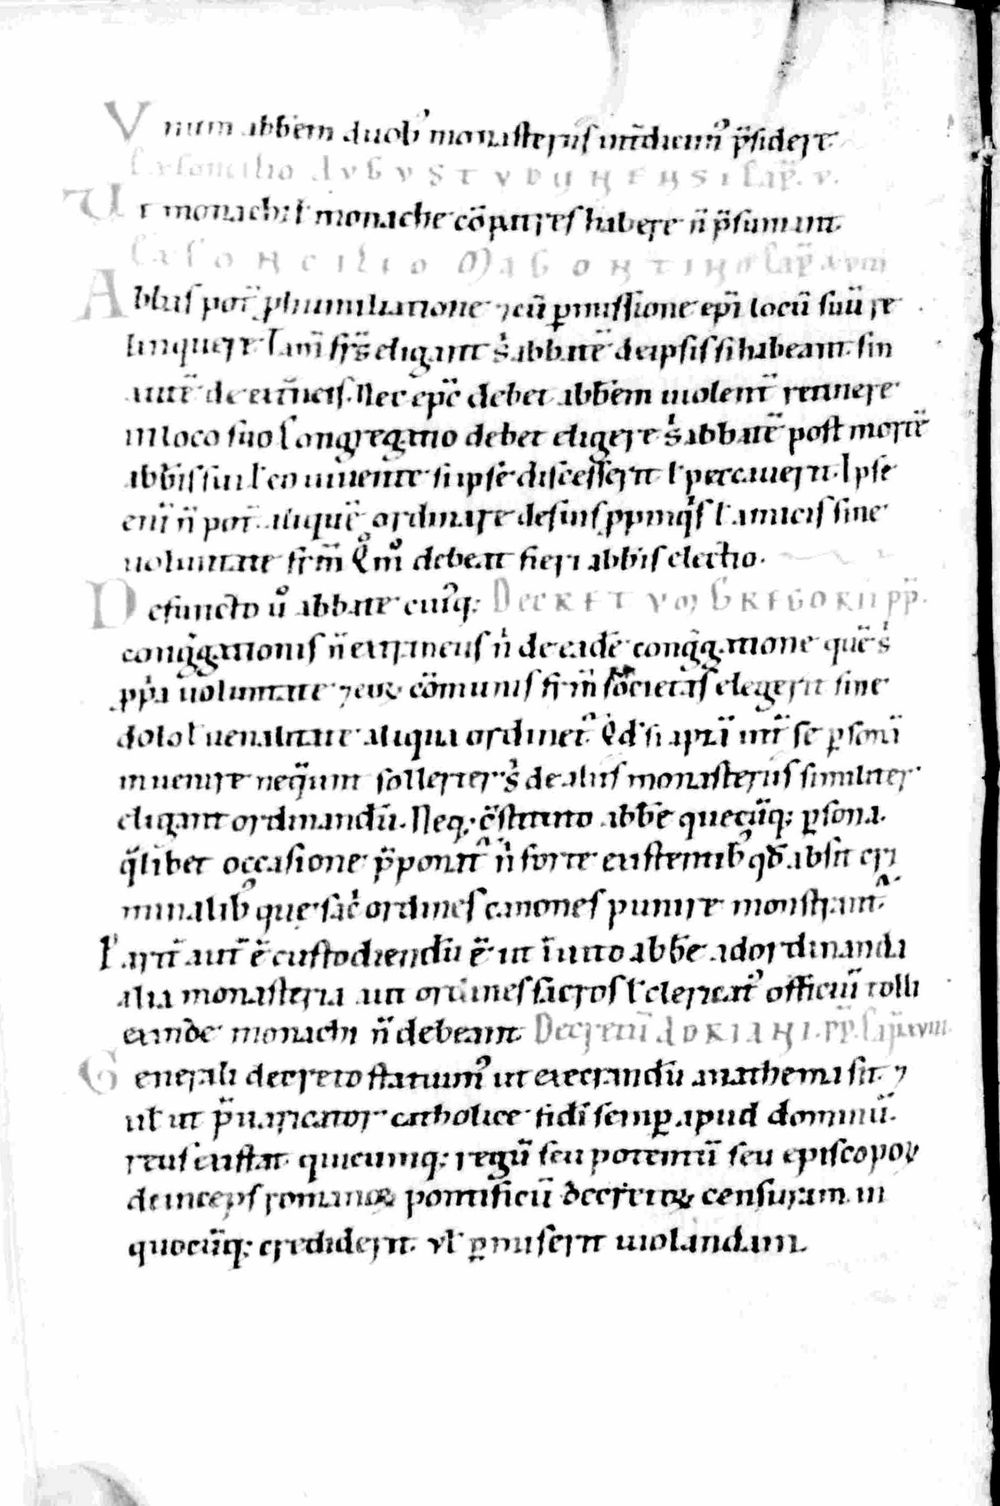 Vnum abbēm duob᾽ monasteriis int̄dicim᾽ p̄sidere.
Ex concilio AVGVSTVDUNENSI cap̄. v.
Ut monachi ł monache cōpatres habere n̄ p̄sumant.
Ex CONCILIO MAGONTINO cap̄. xviii
Abbas pot̄ ꝓ humiliatione ⁊ cū ꝑmissione ep̄i locū suū re
linquere. Tam̄ fr̄s eligant s᷒ abbatē de ipsis si habeant. sin
autē de ext̄neis. Nec ep̄c debet abbēm uiolent̄ retinere
in loco suo. Congregatio debet eligere s᷒ abbatē post mortē
abbīs sui ł eo uiuente si ipse discesserit. ł peccauerit. Ipse
eni᷒ n̄ pot̄ aliquē ordinare de suis ꝓpinq᷒s ł amicis sine
uoluntate fr̄m. Qͦm̄ͦ debeat fieri abbīs electio.
Defuncto u᷒ abbate cuiusq;: DECRETVM GREGORII pp̄.
cong̃gationis n̄ extraneus n᷒ de eadē cong̃gatione quē s᷒
ꝓp̄a uoluntate ⁊ eoꝝ cōmunis fr̄m societas elegerit sine
dolo ł uenalitate aliqua ordinet᷒. Qd̄ si aptā int̄ se ꝑsonā
inuenire neq̄unt sollerter s᷒ de aliis monasteriis similiter
eligant ordinandū. Neq; ɔ̄stituto abbē quecūq; ꝑsona.
q̄libet occasione p̄ponat᷒ n᷒ forte extantib᷒ qd̄ absit cri
minalib᷒ que sac᷒ ordines canones punire monstrant᷒.
Parit̄ aut̄ ē custodiendū ē ut īuito abbē ad ordinanda
alia monasteria aut ordines sacros ł clericat᷒ officiū tolli
exinde monachi n̄ debeant. Decretū ADRIANI. pp̄. cap̄. xviii.
Generali decreto statuim᷒ ut execrandū anathema sit. ⁊
uł ut p̄uaricator catholice fidī semꝑ apud dominū.
reus existat. quicumq; regū seu potentū seu episcopoꝝ
deinceps romanoꝝ pontificū decretoꝝ censuram in
quocūq; crediderit. vł ꝑmiserit uiolandam.